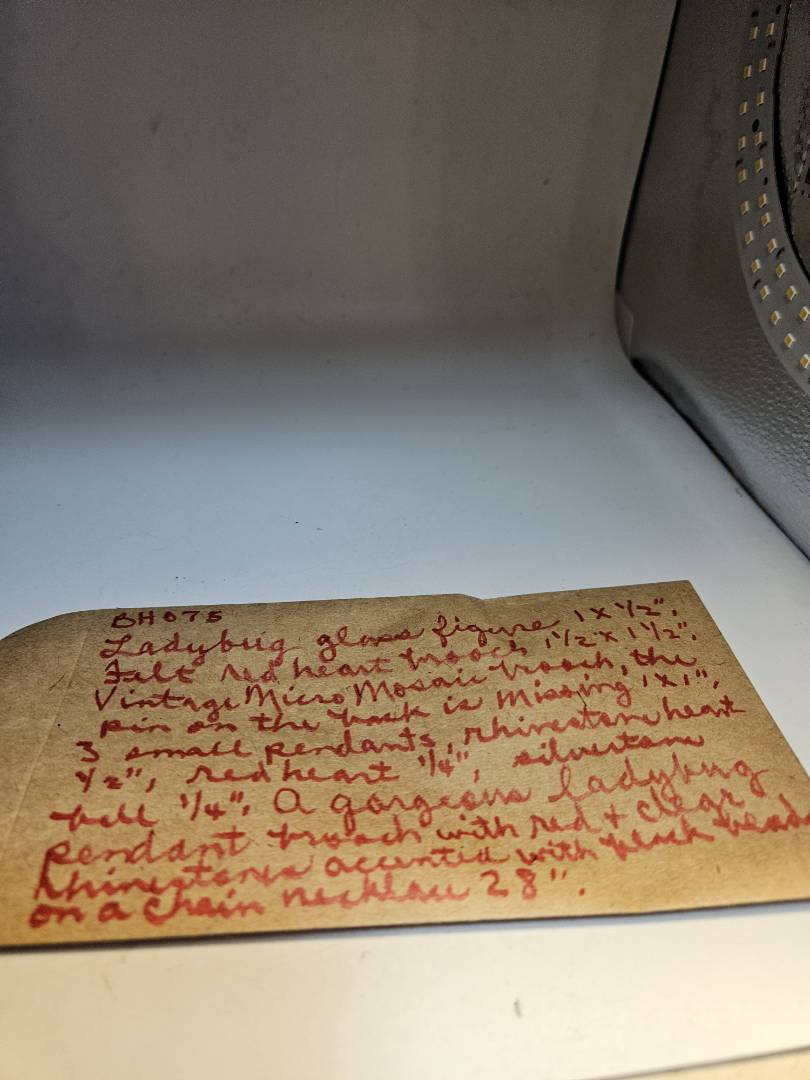 BH075
Ladybug glass figure 1 x 1/2",
Felt red heart brooch 1 1/2" x 1 1/2",
Vintage Micro Mosaic brooch, the
pin on the back is missing 1" x 1",
3 small pendants, rhinestone heart
1/2", red heart 1/4", silvertone
bell 1/4". A gorgeous ladybug
pendant brooch with red + clear
rhinestones accented with black beads
on a chain necklace 28".